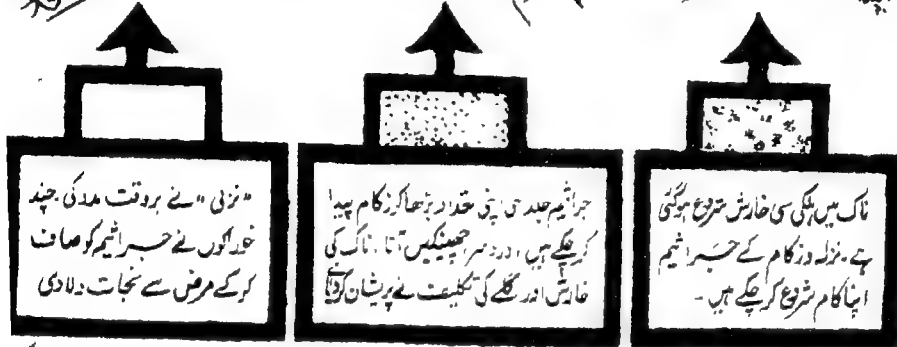 ناک میں ہلکی سی خارش شروع ہوگئی
ہے۔ نزلہ و زکام کے جراثیم
اپنا کام شروع کر چکے ہیں۔
جراثیم جلد ہی اپنی تعداد بڑھا کر زکام پیدا
کر چکے ہیں، درد سر، چھینکیں آنا، ناک کی
خارش اور گلے کی تکلیف نے پریشان کر دیا
"نزلی" نے بروقت مدد کی۔ چند
خوراکوں نے جراثیم کو صاف
کرکے مرض سے نجات دلا دی